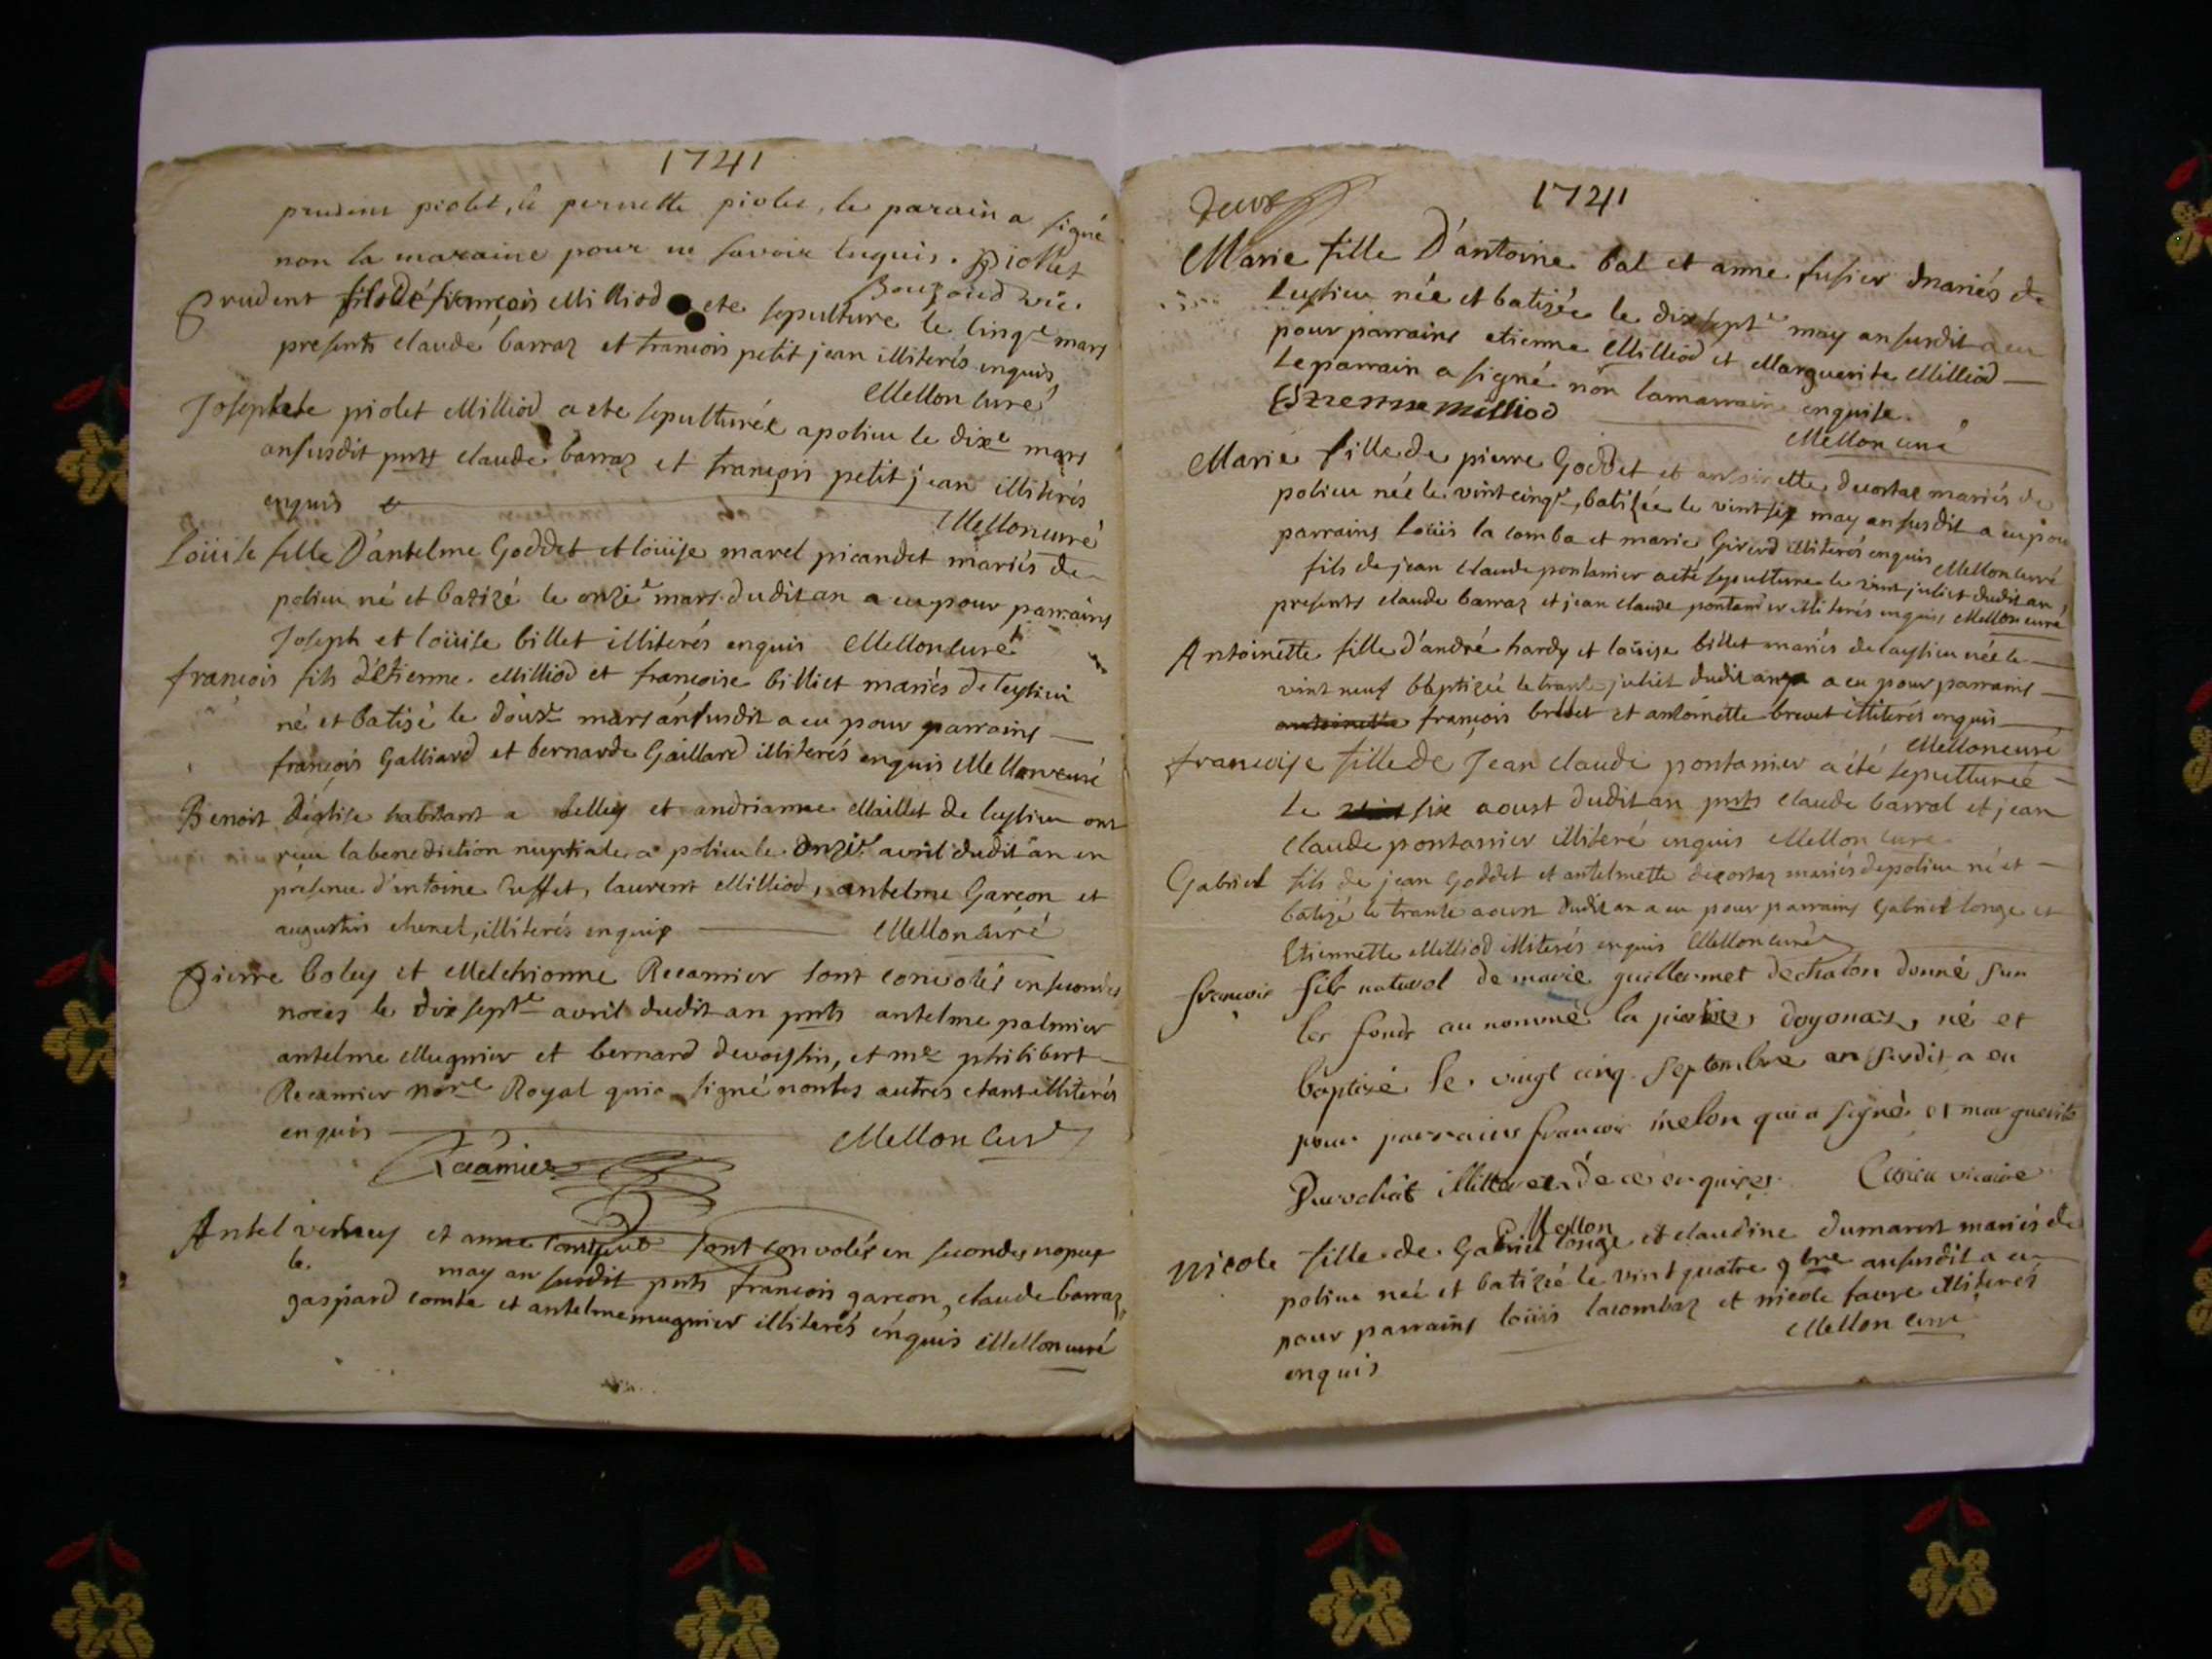 1741
prudent piolet, et pernette piolet, le parain a signé
non la maraine pour ne savoir enquis. piollet
Bouzoud vic.
Prudent fils de françois Milliod ete sepulture le cinqe mars
presents claude barraz et francois petit jean illiterés enquis
Mellon curé
Josephete piolet Milliod a ete sepulturée a polieu le dixe mars
ansusdit pnts claude barraz et françois petit jean illiterés
enquis
Mellon curé
Loüise fille D'antelme Goddet et loüise marel picandet mariés de
polieu né et batizé le onze mars dudit an a eu pour parrains
Joseph et loüise billet illiterés enquis Mellon curé
françois fils d'etienne Milliod et françoise billiet mariés de leysieu
né et batisé le douxe mars an susdit a eu pour parrains
françois Galliard et bernarde Gaillard illiterés enquis Mellon curé
Benoit Deglise habitant a belley et andrianne Maillet de leysieu ont
reçu la benediction nuptiale a polieu le onzie avril dudit an en
présence d'antoine Cuffet, laurent Milliod, antelme Garçon et
augustin chenel, illiterés enquis Mellon curé
Pierre boley et Melchionne Recamier sont convolés en secondes
noces le dix septe avril dudit an pnts antelme palmier
antelme Mugnier et bernard devoissin, et me philibert
Recamier nore Royal qui a signé non les autres etant illiterés
enquis Mellon curé
Récamier
Antel verney et anne sont convolés en secondes nopces
le may an susdit pnts françois garçon, claude barraz
gaspard comte et antelme mugnier illiterés enquis Mellon curé
deux
1741
Marie fille D'antoine bal et anne fusier mariés de
leysieu née et batizée le dix septe may an susdit a eu
pour parrains etienne Milliod et Marguerite Milliod
Le parrain a signé non la marraine enquise.
Etienne Milliod
Mellon curé
Marie fille de pierre Goddet et antoinette decortaz mariés de
polieu née le vint cinqe, batizée le vint six may an susdit a eu pour
parrains loüis la comba et marie Girerd illiterés enquis Mellon curé
fils de jean claude pontanier a eté sepulture le vint juliet dudit an,
presents claude barraz et jean claude pontanier illiterés enquis Mellon curé
Antoinette fille d'andré hardy et loüise billet mariés de leysieu née le
vint neuf baptizée le trante juliet dudit an a eu pour parrains
antoinette françois brevet et antoinette brevet illiterés enquis
Mellon curé
françoise fille de Jean claude pontanier a été sepulturée
le six aoust dudit an pnts claude barral et jean
claude pontanier illiteré enquis Mellon curé
Gabriel fils de jean Goddet et antelmette decortaz mariés de polieu né et
batizé le trante aoust dudit an a eu pour parrains Gabriel longe et
Etiennette Milliod illiterés enquis Mellon curé
françois fils naturel de marie guillermet de chalon donné sur
les fonds au nommé la d'oyonax, né et
baptisé le vingt cinq septembre an susdit a eu
pour parrains françois melon qui a signé et marguerite
Durochat de ce enquises. vicaire
Mellon
Nicole fille de Gabriel longe et claudine dumarest mariés de
polieu née et batizée le vint quatre 9bre an susdit a eu
pour parrains loüis lacombaz et nicole favre illiterés
enquis
Mellon curé